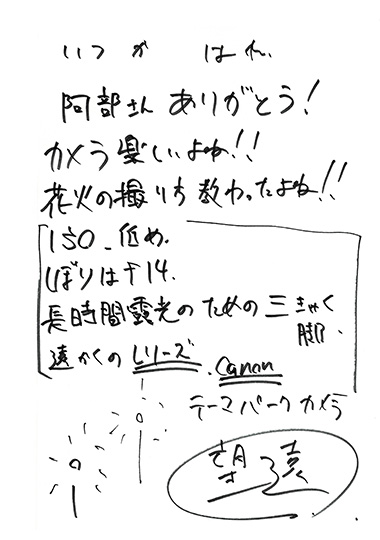 いつか はれ、
阿部さん ありがとう!
カメラ楽しいよね!!
花火の撮り方教わったよね!!
ISO 低め、
しぼりはf14、
長時間露光のための三きゃく
脚、
遠かくのレリーズ、Canon
テーマパークカメラ
望遠